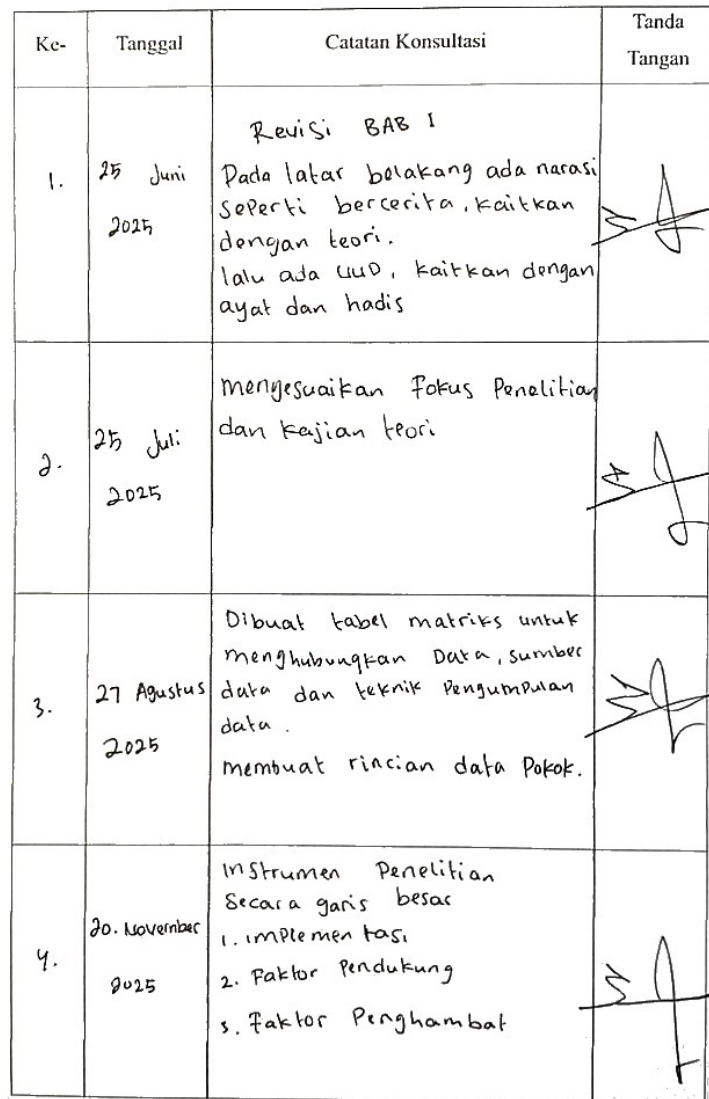 Ke-
Tanggal
Catatan Konsultasi
Tanda
Tangan
1.
25 Juni
2025
Revisi BAB I
Pada latar belakang ada narasi
seperti bercerita, kaitkan
dengan teori.
lalu ada UUD, kaitkan dengan
ayat dan hadis
2.
25 Juli
2025
mengesuaikan Fokus Penelitian
dan kajian teori
3.
27 Agustus
2025
Dibuat tabel matriks untuk
menghubungkan Data, sumber
data dan teknik Pengumpulan
data.
membuat rincian data Pokok.
4.
20. November
2025
Instrumen Penelitian
Secara garis besar
1. implementasi
2. Faktor Pendukung
3. Faktor Penghambat